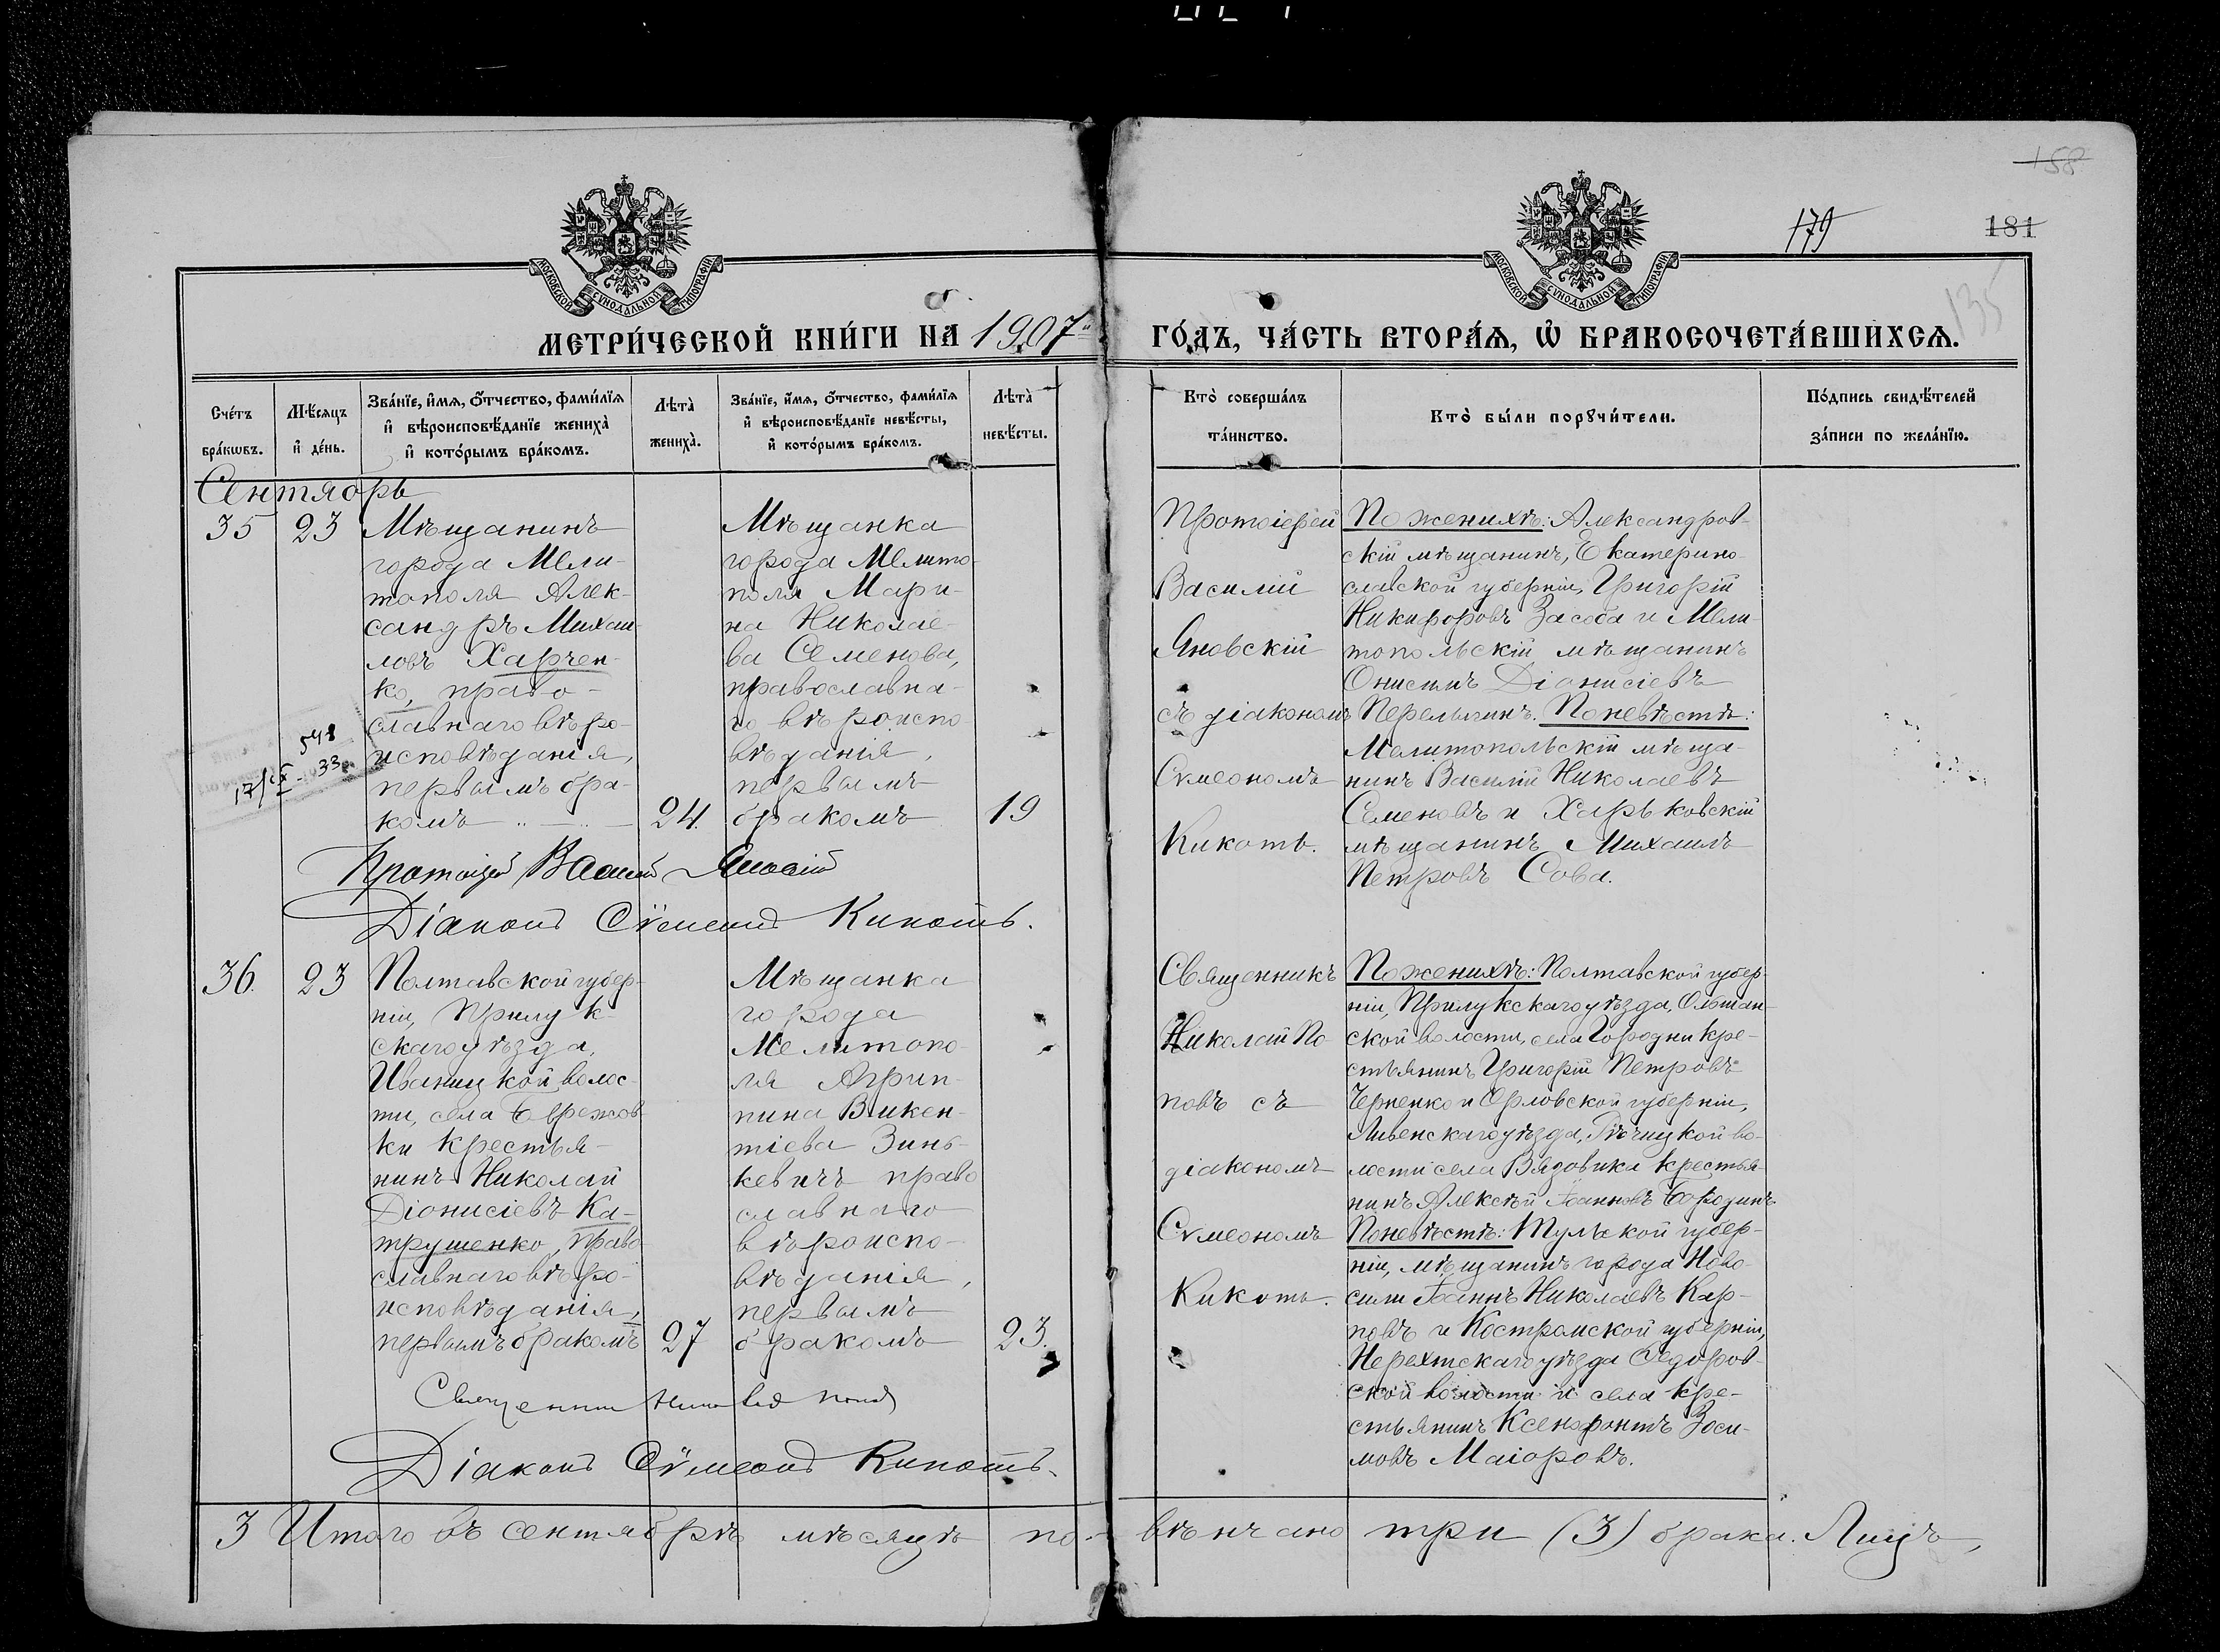 158
179
181
135
МОСКОВСКОЙ СУНОДАЛЬНОЙ ТИПОГРАФІИ
МОСКОВСКОЙ СУНОДАЛЬНОЙ ТИПОГРАФІИ
МЕТРИ́ЧЕСКОЙ КНИ́ГИ НА 1907й
ГО́ДЪ, ЧА́СТЬ ВТОРА́Я, Ѡ БРАКОСОЧЕТА́ВШИХСЯ.
Сче́тъ
бра́кѡвъ.
Мѣ́сяцъ
и де́нь.
Зва́нїе, и́мя, ѻ́тчество, фами́лїя
и вѣроисповѣ́данїе жениха̀
и кото́рымъ бра́комъ.
Лѣ́та̀
жениха̀.
Зва́нїе, и́мя, ѻ́тчество, фами́лїя
и вѣроисповѣ́данїе невѣ́сты,
и кото́рымъ бра́комъ.
Лѣ́та̀
невѣ́сты.
Кто̀ соверша́лъ
та́инство.
Кто̀ бы́ли порꙋчи́тели.
По́дпись свидѣ́телей
за́писи по жела́нїю.
Сентябрь
35
23
Мѣщанинъ
города Мели-
тополя Алек-
сандръ Михаи-
ловъ Харчен-
ко, право-
славнаго вѣро-
исповѣданія,
первымъ бра-
комъ
24.
Мѣщанка
города Мелито-
поля Мари-
на Николае-
ва Семенова,
православна-
го вѣроиспо-
вѣданія,
первымъ
бракомъ
19
Протоіерей
Василій
Яновскій
съ діакономъ
Сѵмеономъ
Кикоть.
По женихѣ: Александров-
скій мѣщанинъ, Екатерино-
славской губерніи, Григорій
Никифоровъ Засоба и Мели-
топольскій мѣщанинъ
Онисимъ Діонисіевъ
Перелыгинъ. По невѣстѣ:
Мелитопольскій мѣща-
нинъ Василій Николаевъ
Семеновъ и Харьковскій
мѣщанинъ Михаилъ
Петровъ Сова.
548
33
Протоіерей Василій Яновскій
Діаконъ Сѵмеонъ Кикоть.
36.
23
Полтавской губер-
ніи, Прилук-
скаго уѣзда,
Иваницкой волос-
ти, села Бережов-
ки крестья-
нинъ Николай
Діонисіевъ Ка-
трушенко, право-
славнаго вѣро-
исповѣданія,
первымъ бракомъ
27
Мѣщанка
города
Мелитопо-
ля Агрип-
пина Викен-
тіева Зинь-
кевичъ право
славнаго
вѣроиспо-
вѣданія,
первымъ
бракомъ
23.
Священникъ
Николай По
повъ съ
діакономъ
Сѵмеономъ
Кикоть.
По женихѣ: Полтавской губер-
ніи, Прилукскаго уѣзда, Ольшан-
ской волости, села Городни кре-
стьянинъ Григорій Петровъ
Черненко и Орловской губерніи,
Ливенскаго уѣзда, Рѣчицкой во-
лости села Вязовика крестья-
нинъ Алексѣй Іоанновъ Бородинъ
По невѣстѣ: Тульской губер-
ніи, мѣщанинъ города Ново-
сили Іоаннъ Николаевъ Кар-
повъ и Костромской губерніи,
Нерехтскаго уѣзда Ѳедоров-
ской волости и села кре-
стьянинъ Ксенофонтъ Зоси-
мовъ Маіоровъ.
Священникъ Николай Поповъ
Діаконъ Сѵмеонъ Кикоть.
3 Итого въ сентябрѣ мѣсяцѣ по-
вѣнчано три (3) брака. Лицъ,